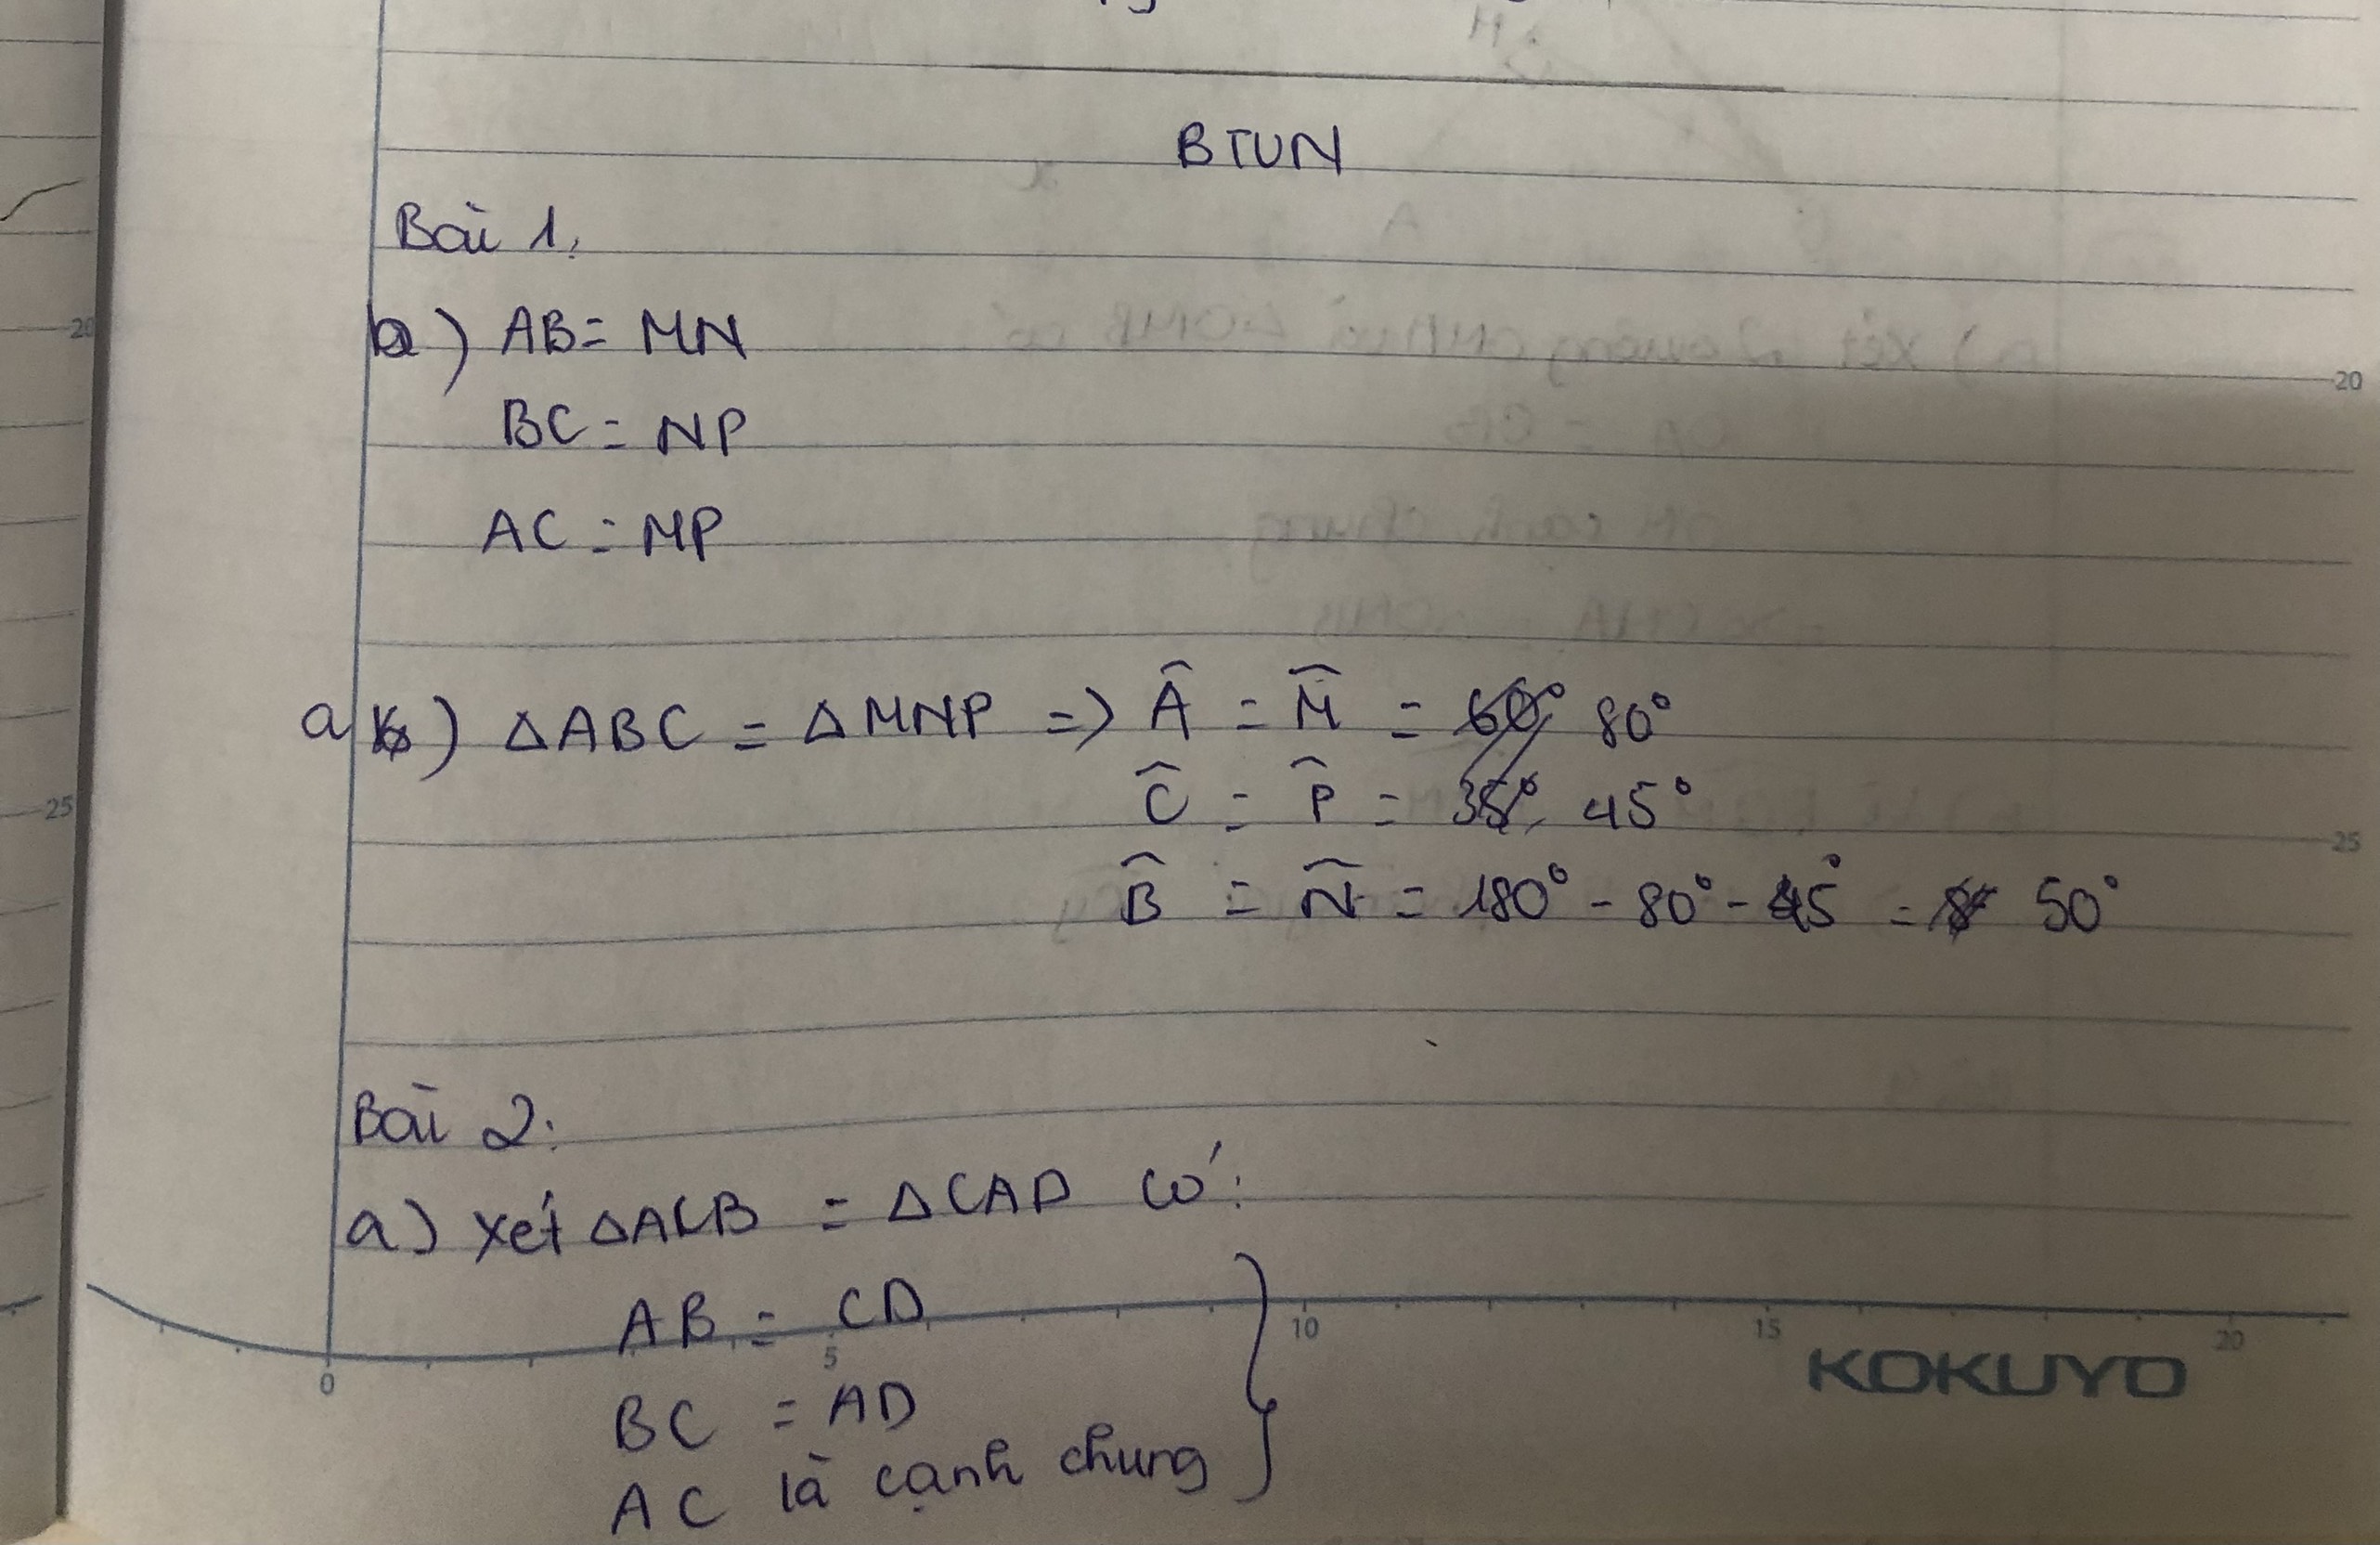 BTVN
Bài 1.
b) AB = MN
BC = NP
AC = MP
a) ΔABC = ΔMNP => Â = M̂ = 60° 80°
Ĉ = P̂ = 35° 45°
B̂ = N̂ = 180° - 80° - 45° = 50°
Bài 2:
a) Xét ΔACB = ΔCAD có:
AB = CD
BC = AD
AC là cạnh chung
20
25
20
25
0 5 10 15 20
KOKUYO